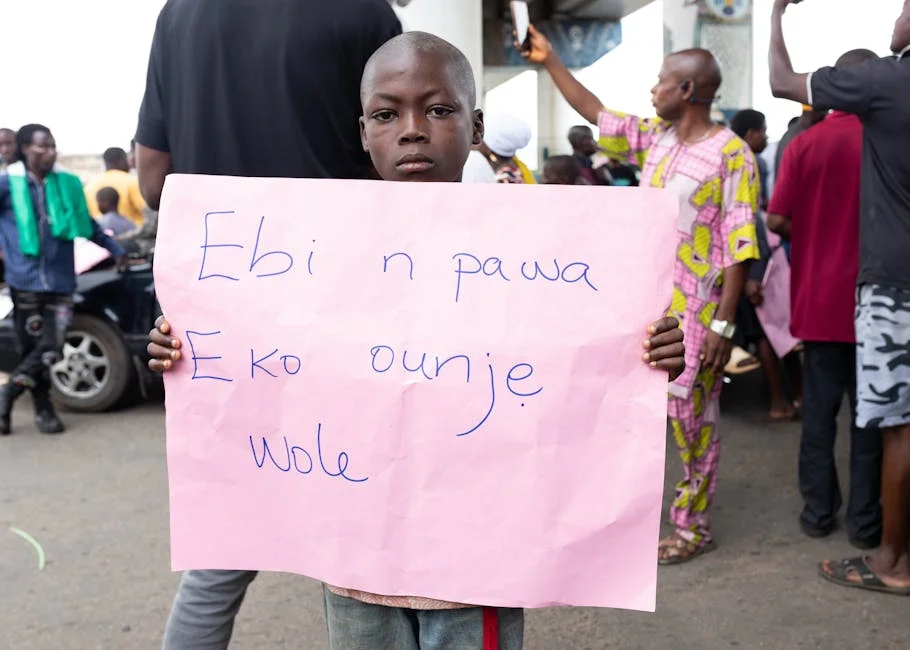 Ebi n pawa
E ko ounjẹ
wole